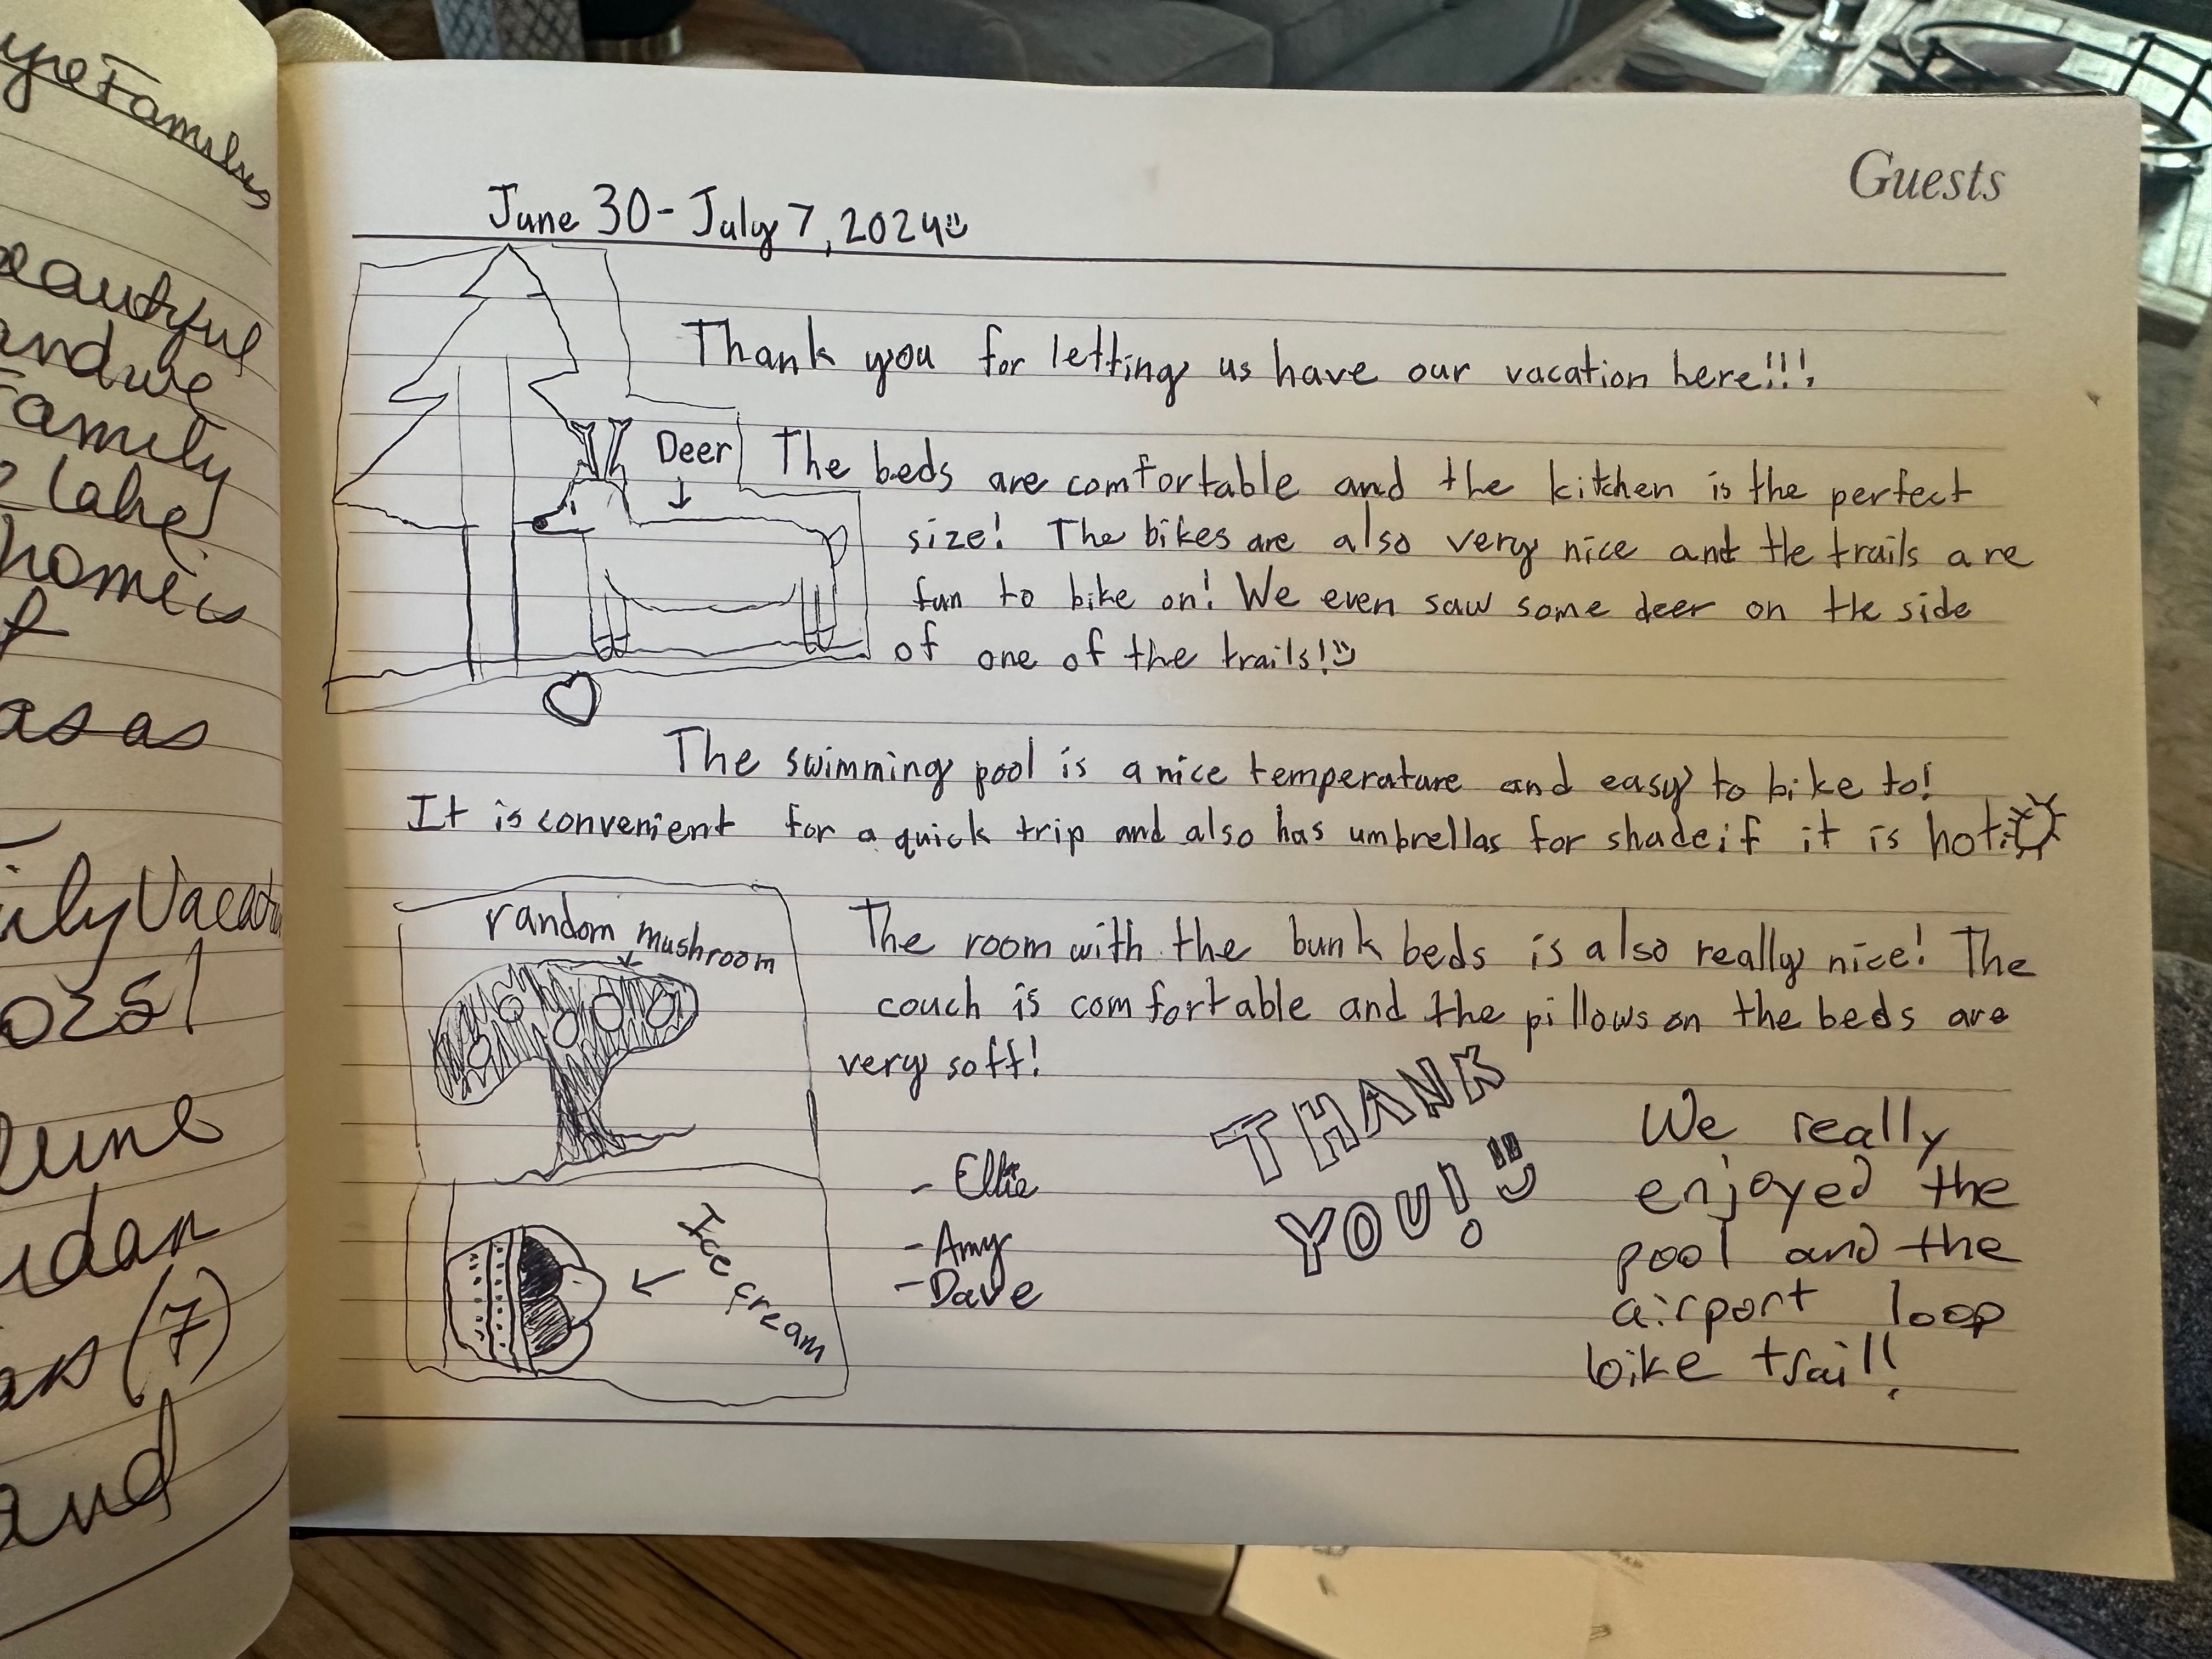 Family
beautiful
and we
Family
lake
home is
as as
ily Vacat
June
(7)
and
Guests
June 30 - July 7, 2024
Thank you for letting us have our vacation here!!!
Deer
The beds are comfortable and the kitchen is the perfect
size! The bikes are also very nice and the trails are
fun to bike on! We even saw some deer on the side
of one of the trails!
The swimming pool is a nice temperature and easy to bike to!
It is convenient for a quick trip and also has umbrellas for shade if it is hot.
random mushroom
The room with the bunk beds is also really nice! The
couch is comfortable and the pillows on the beds are
very soft!
THANK
YOU!
- Ellie
- Amy
- Dave
Ice cream
We really
enjoyed the
pool and the
airport loop
bike trail!